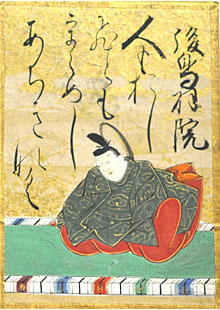 後鳥羽院
人もおし
人も
うらめし
あちきなく